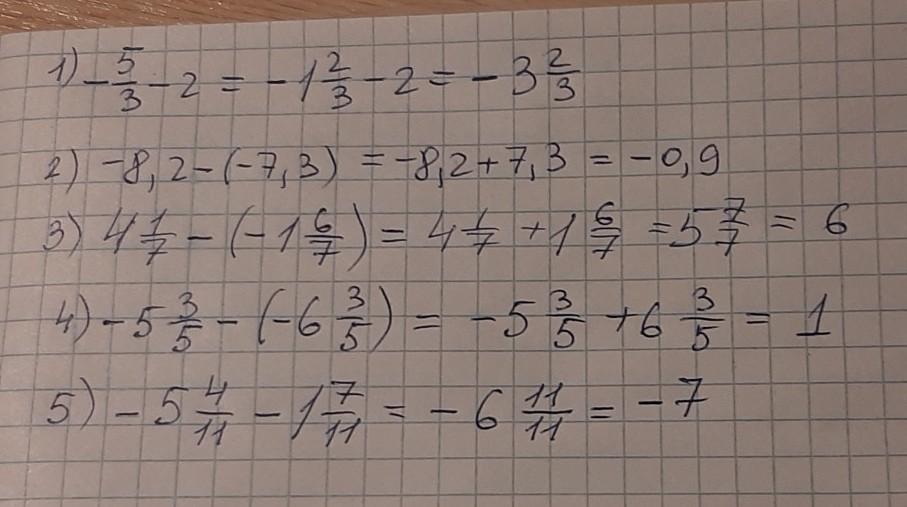 1) -5/3 - 2 = -1 2/3 - 2 = -3 2/3
2) -8,2 - (-7,3) = -8,2 + 7,3 = -0,9
3) 4 1/7 - (-1 6/7) = 4 1/7 + 1 6/7 = 5 7/7 = 6
4) -5 3/5 - (-6 3/5) = -5 3/5 + 6 3/5 = 1
5) -5 4/11 - 1 7/11 = -6 11/11 = -7